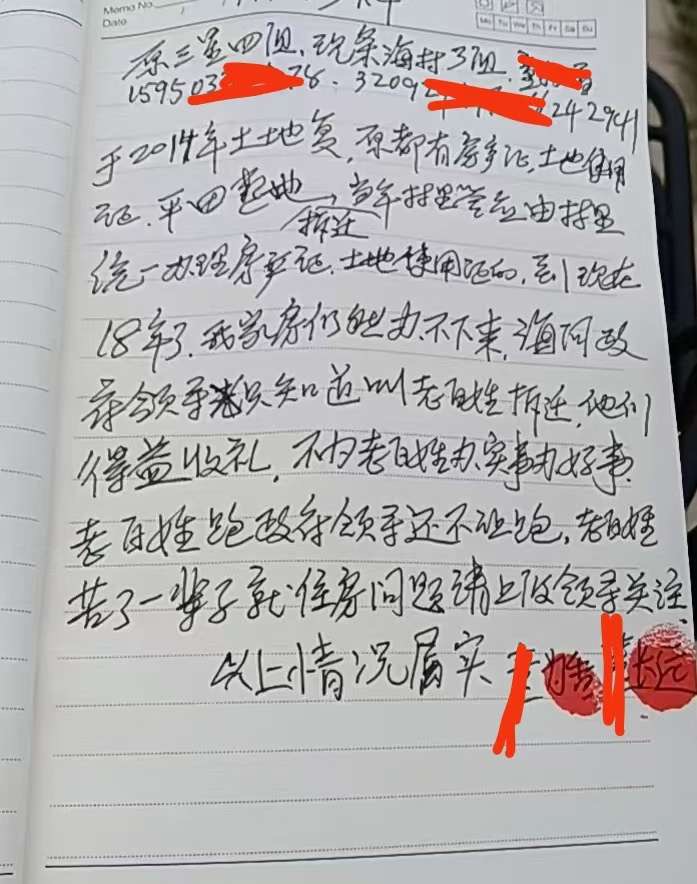 Memo No.
Date
Mo Tu We Th Fr Sa Su
原三星四组、现条海村3组、
15950 78、3209 242941
于2014年土地复，原都有房产证、土地使用
证、平田整地、当年村里答应由村里
拆迁
统一办理房产证、土地使用证的，到现在
18年了，我家房仍然办不下来，海河政
府领导只知道叫老百姓拆迁，他们
得益收礼，不为老百姓办实事办好事，
老百姓跑政府领导还不让跑，老百姓
苦了一辈子就住房问题请上级领导关注
以上情况属实